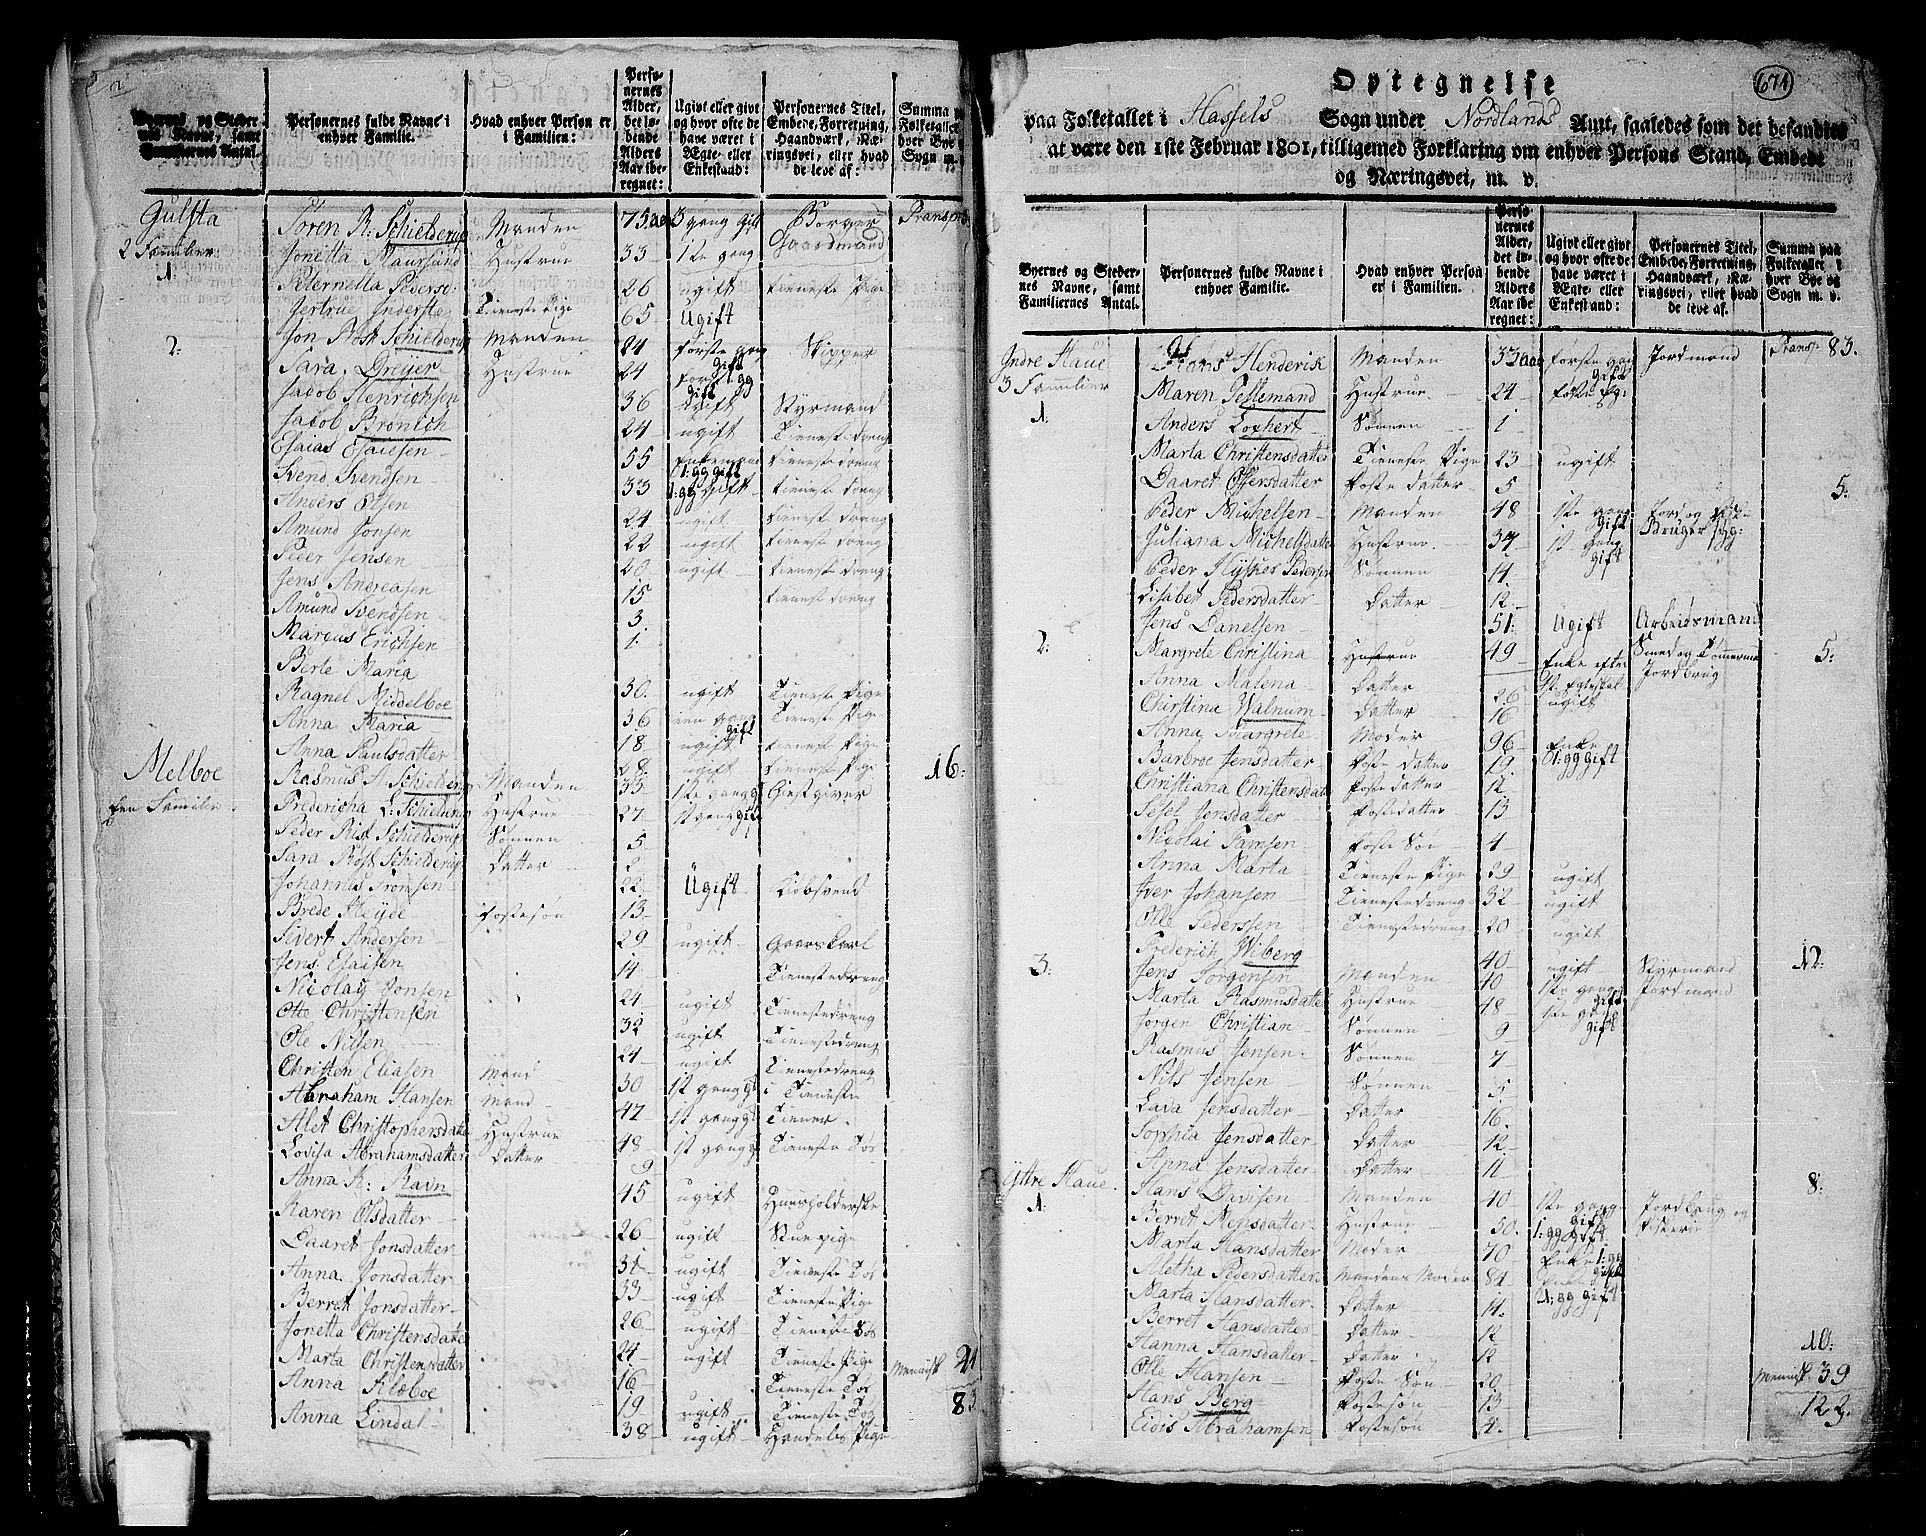 Byernes og Steder-
nes Navne, samt
Familiernes Antal.
Personernes fulde Navne i
enhver Familie.
Hvad enhver Person er
i Familien:
Perso-
nernes
Alder,
det lø-
bende
Alders
Aar ibe-
regnet:
Ugivt eller givt
og hvor ofte de
have været i
Ægte- eller
Enkestand:
Personernes Titel,
Embede, Forretning,
Haandværk, Næ-
ringsvei, eller hvad
de leve af:
Summa
Folketallet
hver Bye
Sogn m.
Gulsta Søren R: Schielderup Manden 75 aar 3 gang gift Borger Transp
2 Familier Jonetta Maursund Hustrue 33 1ste gang Gaardmand
1. Peternella Pederse: 26 ugift tieneste Pige
Jertrue Inderstæ Tieneste Pige 65 Ugift
2: Jon Røst Schielderup Manden 24 første gang gift Skipper
Sara Dreyer Hustrue 24 første gg gift
Jacob Henrichsen 36 ugift Styrmand
Jacob Bronich 24 ugift Tieneste dreng
Esaias Esaiesen 55 Enkemand 1: gg gift tieneste dreng
Svend Svendsen 33 1: gg gift tieneste dreng
Anders Olsen 24 ugift tieneste dreng
Amund Jonsen 22 ugift tieneste dreng
Peder Jensen 20 ugift tieneste dreng
Jens Andreasen 15 tieneste dreng
Amund Svendsen 3
Marcus Erichsen 1
Berte Maria
Ragnel Middelboe 30 ugift Tieneste Pige
Anna Maria 36 een gang gift Tieneste Pige
Anna Paulsdatter 18 ugift tieneste Pige
Melboe Rasmus A Schielder Manden 33 1ste gang Giestgiver 16:
Een Familie Fredericha L: Schielderup Hustrue 27 1st gang gift
Peder Rist Schielderup Sønnen 5
Sara Røst Schielderup Datter 2
Johannes Tromsen 22 Ugift Kobsvend
Brede Heyde Fostesøn 13
Sivert Andersen 29 ugift Gaardskarl
Jens Esaisen 14 Tienestedreng
Nicolay Jonsen 24 ugift Tienestedreng
Otte Christensen 32 ugift
Ole Nilsen 24 ugift Tienestedreng
Christen Eliasen Mand 30 1st gang Tieneste
Abraham Hansen Mand 47 1st gang Tiener
Alet Christophersdatte Hustrue 48 1st gang Tieneste Tøs
Lovisa Abrahamsdatter Datter 9
Anna K: Ravn 45 ugift Huusholderske
Karen Olsdatter 26 ugift Stuepige
Daaret Jonsdatter 31 ugift Tieneste Tøs
Anna Jonsdatter 33 ugift Tieneste Pige
Berret Jonsdatter 26 ugift Tieneste Tøs
Jonetta Christensdatte 24 ugift Tieneste Pige
Marta Christensdatter 16 Tieneste Tøs Mennisk 21
Anna Klæboe 19 ugift Tieneste Tøs 83
Anna Lindal 38 ugift Handels Pige
671
Optegnelse
paa Folketallet i Hassels Sogn under Nordlands Amt, saaledes som det befandtes
at være den 1ste Februar 1801, tilligemed Forklaring om enhver Persons Stand, Embede
og Næringsvei, m. v.
Byernes og Steder-
nes Navne, samt
Familiernes Antal.
Personernes fulde Navne i
enhver Familie.
Hvad enhver Person
er i Familien.
Perso-
nernes
Alder,
det lø-
bende
Alders
Aar ibe-
regnet:
Ugivt eller givt
og hvor ofte de
have været i
Ægte- eller
Enkestand:
Personernes Titel,
Embede, Forretning,
Haandværk, Næ-
ringsvei, eller hvad
de leve af.
Summa paa
Folketallet i
hver Bye og
Sogn m. v.
Indre Haue Hans Henderik Manden 33 aar første gang gift Jordmand Transp 83.
3 Familier Maren Tellemand Hustrue 24 første gg:
1. Anders Loxhert Sønnen 1
Marta Christensdatter Tieneste Pige 23 ugift
Daaret Olfersdatter Foste datter 5 5:
Peder Michelsen Manden 48 1ste gang gift Jord og
Juliana Michelsdatte Hustrue 37 1st gang gift Bruger
Peder Hysnes Pedersen Sønnen 14
Lisabet Pedersdatter Datter 12
Jens Danelsen 51 Ugift Arbeidsmand
2: Margrete Christina Hustrue 49 Enke efter Smed og Tømmerma 5:
Anna Malena Datter 26 ugift Jordbrug
Christina Walnum Datter 16
Anna Margrete Moder 96 Enke 1: gg gift
Barbroe Jensdatter Foste datter 19
Christiana Christensdat Foste datter 12
Sesel Jensdatter Fostedatter 13
Nicolai Tomsen Foste Søn 4
Anna Marta Tieneste Pige 29 ugift
Iver Johansen Tienestedreng 32 ugift
Ole Pederssen Tienestedreng 20 ugift
Frederich Wiberg 40 ugift Styrmand 12:
3. Jens Jorgensen Manden 40 1ste gang gift Jordmand
Marta Rasmusdatte Hustrue 48 1ste gang gift
Jorgen Christian Sønnen 9
Rasmus Jensen Sønnen 7
Nils Jensen Sønnen 5
Lava Jensdatter Datter 16.
Sophia Jensdatter Datter 12
Anna Jensdatter Datter 11
Yttre Haue Hans Davisen Manden 40 1ste gang gift Jordbrug og 8:
1. Berret Monsdatter Hustrue 50. 1: gg gift Fiskerie
Marta Hansdatter Moder 70 Enke 1: gg
Metha Pedersdatter Mandens Moder 84 1: gg gift
Marta Hansdatter Datter 14
Berret Hansdatter Datter 12
Hanna Hansdatter Datter 12 10:
Ole Hansen Foste Søn 20 Mennisk 39
Hans Berg Fostesøn 13 122.
Eidis Abrahamsen Fostesøn 4